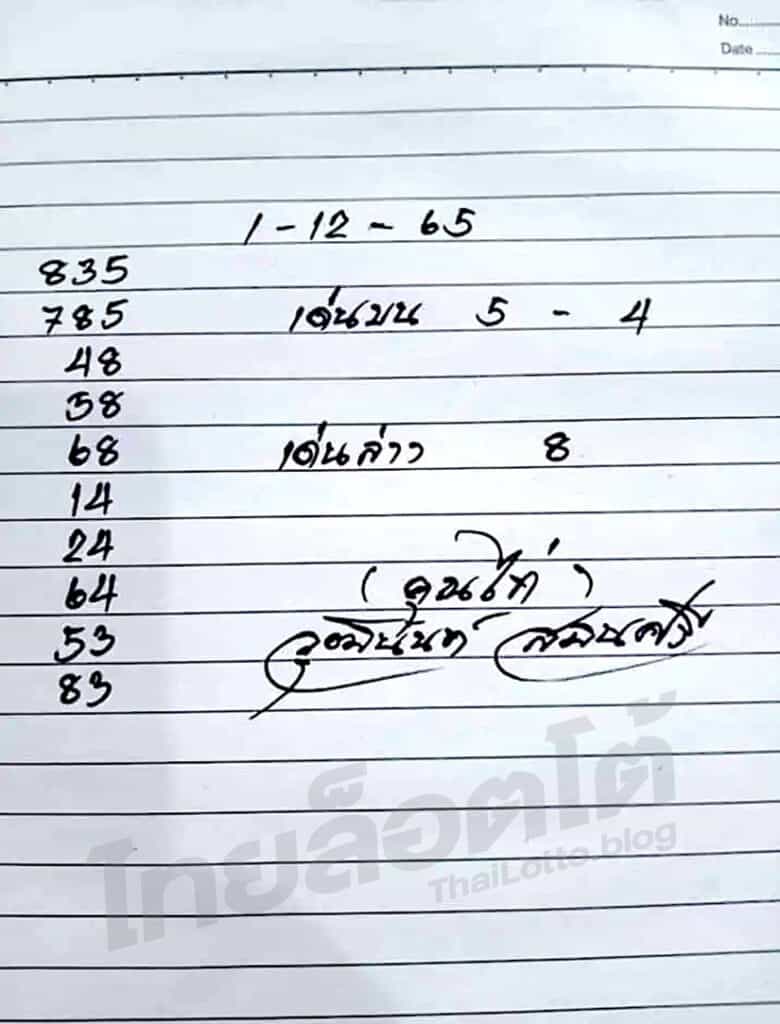 No.........
Date .....
1 - 12 - 65
835
785 เด่นบน 5 - 4
48
58
68 เด่นล่าง 8
14
24
64 (คุนไท่)
53
83
ไทยล็อตโต้
ThaiLotto.blog